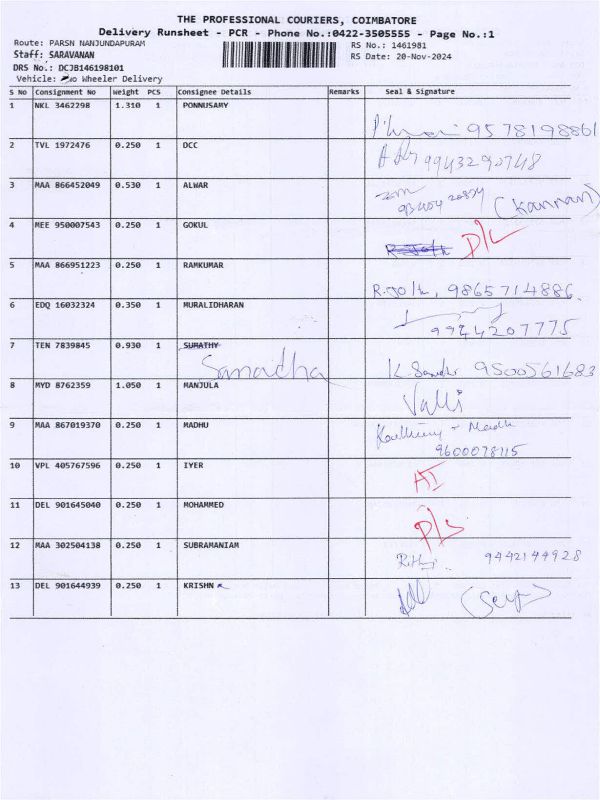 THE PROFESSIONAL COURIERS, COIMBATORE
Delivery Runsheet - PCR - Phone No.:0422-3505555 - Page No.:1
Route: PARSN NANJUNDAPURAM
RS No.: 1461981
Staff: SARAVANAN
RS Date: 20-Nov-2024
DRS No.: DCJB146198101
Vehicle: Two Wheeler Delivery
S No Consignment No Weight PCS Consignee Details Remarks Seal & Signature
1 NKL 3462298 1.310 1 PONNUSAMY
9578198861
2 TVL 1972476 0.250 1 DCC
9943290748
3 MAA 866452049 0.530 1 ALWAR
(Kannan)
4 MEE 950007543 0.250 1 GOKUL
D/L
5 MAA 866951223 0.250 1 RAMKUMAR
R. Jo 9865714886
6 EDQ 16032324 0.350 1 MURALIDHARAN
9944207775
7 TEN 7839845 0.930 1 SUMATHY
Sanadha K. 9500561683
8 MYD 8762359 1.050 1 MANJULA
Valli
9 MAA 867019370 0.250 1 MADHU
Madh
9600078115
10 VPL 405767596 0.250 1 IYER
AI
11 DEL 901645040 0.250 1 MOHAMMED
D/L
12 MAA 302504138 0.250 1 SUBRAMANIAM
9442144928
13 DEL 901644939 0.250 1 KRISHN
(Self)